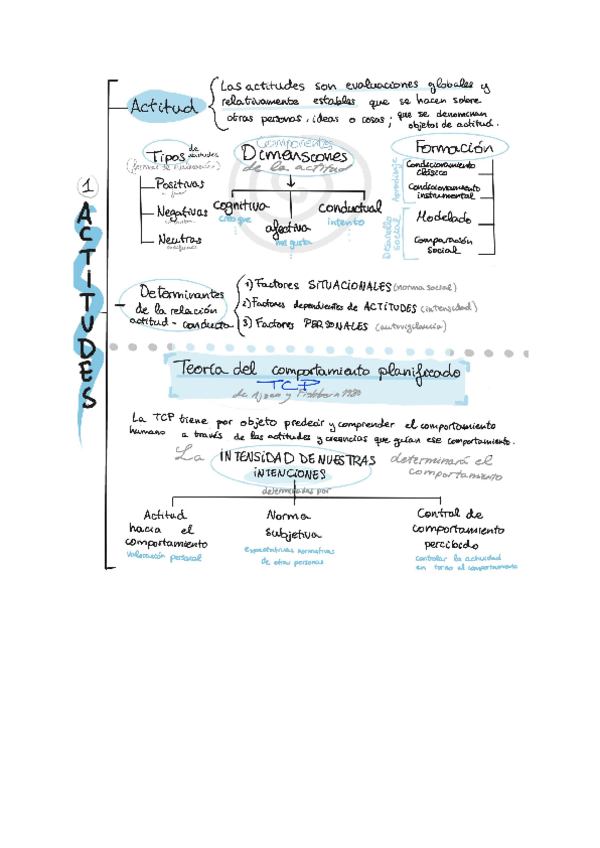 1
ACTITUDES
Actitud
Las actitudes son evaluaciones globales y
relativamente estables que se hacen sobre
otras personas, ideas o cosas; que se denominan
objetos de actitud.
Tipos de actitudes
Positivas
Negativas
Neutras
Componentes
Dimensiones
de la actitud
cognitiva
creo que
afectiva
me gusta
conductual
intento
Formación
Aprendizaje
Condicionamiento
clásico
Condicionamiento
instrumental
Desarollo
social
Modelado
Comparación
social
Determinantes
de la relación
actitud - conducta
1) Factores SITUACIONALES (norma social)
2) Factores dependientes de ACTITUDES (intensidad)
3) Factores PERSONALES (autovigilancia)
Teoría del comportamiento planificado
TCP
de Ajzen y Fishbein 1980
La TCP tiene por objeto predecir y comprender el comportamiento
humano a través de las actitudes y creencias que guían ese comportamiento.
La INTENSIDAD DE NUESTRAS INTENCIONES determinará el
comportamiento
determinadas por
Actitud
hacia el
comportamiento
valoración personal
Norma
Subjetiva
expectativas normativas
de otras personas
Control de
comportamiento
percibido
controlar la actividad
en torno al comportamiento